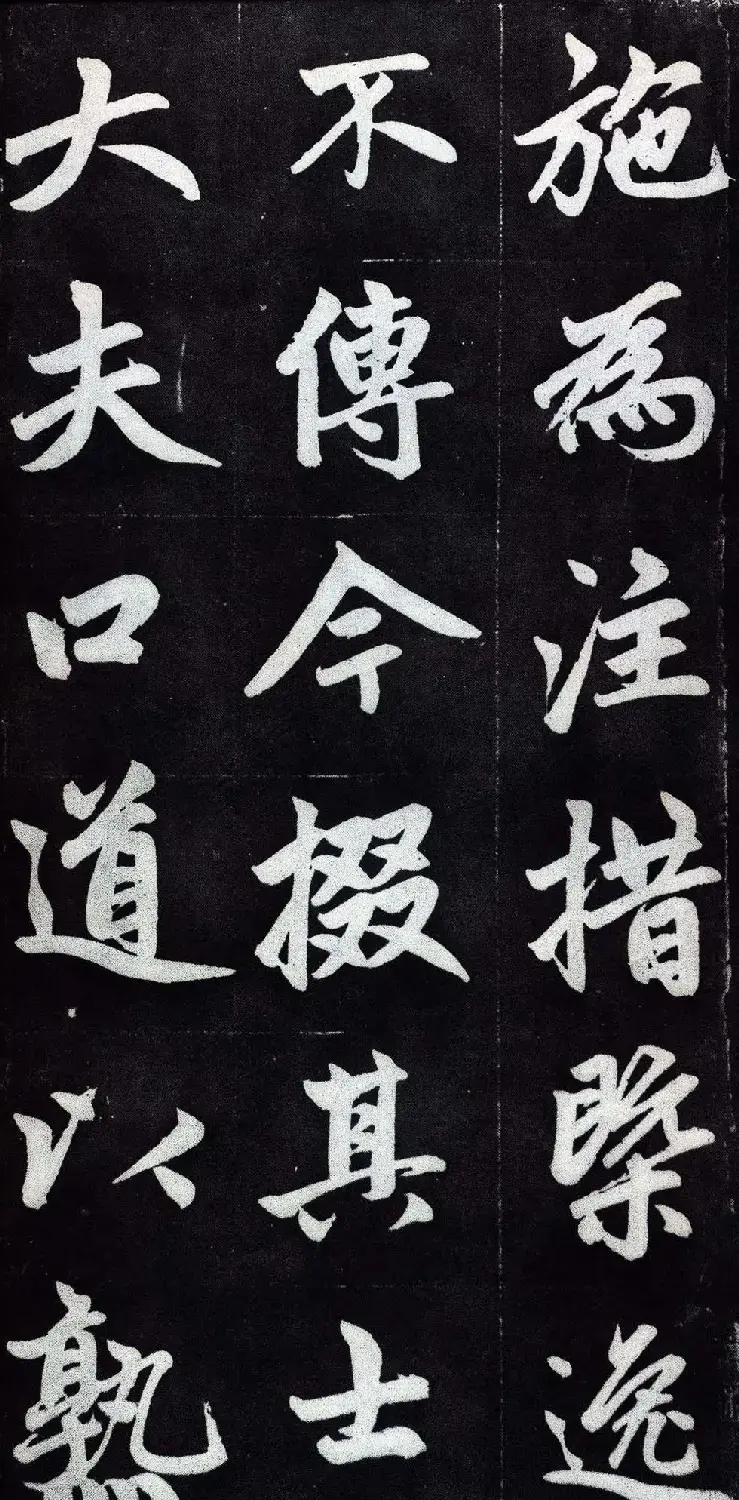 施為注措槩逸
不傳今掇其士
大夫口道以熟